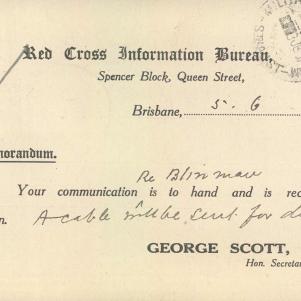 Red Cross Information Bureau,
Spencer Block, Queen Street,
Brisbane, 5. 6
morandum.
Re Blinman
Your communication is to hand and is rec
n. A cable will be sent for d
GEORGE SCOTT,
Hon. Secretar